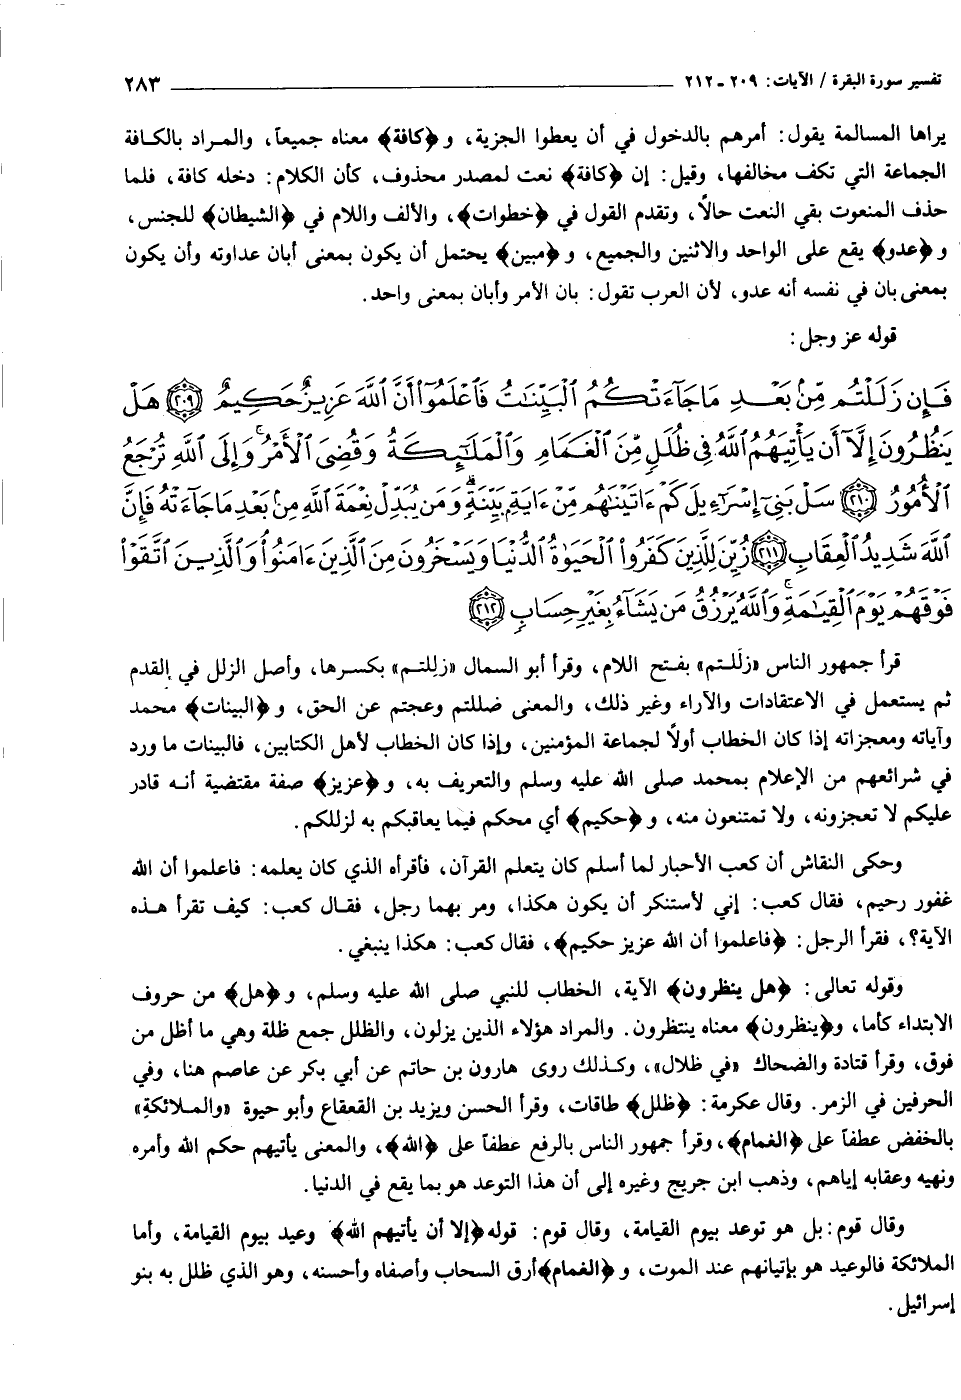 تفسير سورة البقرة / الآيات: ٢٠٩ - ٢١٢ ٢٨٣
يراها المسالمة يقول: أمرهم بالدخول في أن يعطوا الجزية، و ﴿كافة﴾ معناه جميعاً، والمراد بالكافة
الجماعة التي تكف مخالفها، وقيل: إن ﴿كافة﴾ نعت لمصدر محذوف، كأن الكلام: دخله كافة، فلما
حذف المنعوت بقي النعت حالاً، وتقدم القول في ﴿خطوات﴾، والألف واللام في ﴿الشيطان﴾ للجنس،
و ﴿عدو﴾ يقع على الواحد والاثنين والجميع، و ﴿مبين﴾ يحتمل أن يكون بمعنى أبان عداوته وأن يكون
بمعنى بان في نفسه أنه عدو، لأن العرب تقول: بان الأمر وأبان بمعنى واحد.
قوله عز وجل:
فَإِن زَلَلْتُم مِّنۢ بَعْدِ مَا جَآءَتْكُمُ ٱلْبَيِّنَٰتُ فَٱعْلَمُوٓا۟ أَنَّ ٱللَّهَ عَزِيزٌ حَكِيمٌ ﴿٢٠٩﴾ هَلْ
يَنظُرُونَ إِلَّآ أَن يَأْتِيَهُمُ ٱللَّهُ فِى ظُلَلٍ مِّنَ ٱلْغَمَامِ وَٱلْمَلَٰٓئِكَةُ وَقُضِىَ ٱلْأَمْرُ ۚ وَإِلَى ٱللَّهِ تُرْجَعُ
ٱلْأُمُورُ ﴿٢١٠﴾ سَلْ بَنِىٓ إِسْرَٰٓءِيلَ كَمْ ءَاتَيْنَٰهُم مِّنْ ءَايَةٍۭ بَيِّنَةٍ ۗ وَمَن يُبَدِّلْ نِعْمَةَ ٱللَّهِ مِنۢ بَعْدِ مَا جَآءَتْهُ فَإِنَّ
ٱللَّهَ شَدِيدُ ٱلْعِقَابِ ﴿٢١١﴾ زُيِّنَ لِلَّذِينَ كَفَرُوا۟ ٱلْحَيَوٰةُ ٱلدُّنْيَا وَيَسْخَرُونَ مِنَ ٱلَّذِينَ ءَامَنُوا۟ وَٱلَّذِينَ ٱتَّقَوْا۟
فَوْقَهُمْ يَوْمَ ٱلْقِيَٰمَةِ ۗ وَٱللَّهُ يَرْزُقُ مَن يَشَآءُ بِغَيْرِ حِسَابٍ ﴿٢١٢﴾
قرأ جمهور الناس «زلَلتم» بفتح اللام، وقرأ أبو السمال «زلِلتم» بكسرها، وأصل الزلل في القدم
ثم يستعمل في الاعتقادات والآراء وغير ذلك، والمعنى ضللتم وعجتم عن الحق، و ﴿البينات﴾ محمد
وآياته ومعجزاته إذا كان الخطاب أولاً لجماعة المؤمنين، وإذا كان الخطاب لأهل الكتابين، فالبينات ما ورد
في شرائعهم من الإعلام بمحمد صلى الله عليه وسلم والتعريف به، و ﴿عزيز﴾ صفة مقتضية أنه قادر
عليكم لا تعجزونه، ولا تمتنعون منه، و ﴿حكيم﴾ أي محكم فيما يعاقبكم به لزللكم.
وحكى النقاش أن كعب الأحبار لما أسلم كان يتعلم القرآن، فأقرأه الذي كان يعلمه: فاعلموا أن الله
غفور رحيم، فقال كعب: إني لأستنكر أن يكون هكذا، ومر بهما رجل، فقال كعب: كيف تقرأ هذه
الآية؟، فقرأ الرجل: ﴿فاعلموا أن الله عزيز حكيم﴾، فقال كعب: هكذا ينبغي.
وقوله تعالى: ﴿هل ينظرون﴾ الآية، الخطاب للنبي صلى الله عليه وسلم، و ﴿هل﴾ من حروف
الابتداء كأما، و﴿ينظرون﴾ معناه ينتظرون. والمراد هؤلاء الذين يزلون، والظلل جمع ظلة وهي ما أظل من
فوق، وقرأ قتادة والضحاك «في ظلال»، وكذلك روى هارون بن حاتم عن أبي بكر عن عاصم هنا، وفي
الحرفين في الزمر. وقال عكرمة: ﴿ظلل﴾ طاقات، وقرأ الحسن ويزيد بن القعقاع وأبو حيوة «والملائكةِ»
بالخفض عطفاً على ﴿الغمام﴾، وقرأ جمهور الناس بالرفع عطفاً على ﴿الله﴾، والمعنى يأتيهم حكم الله وأمره
ونهيه وعقابه إياهم، وذهب ابن جريج وغيره إلى أن هذا التوعد هو بما يقع في الدنيا.
وقال قوم: بل هو توعد بيوم القيامة، وقال قوم: قوله ﴿إلا أن يأتيهم الله﴾ وعيد بيوم القيامة، وأما
الملائكة فالوعيد هو بإتيانهم عند الموت، و ﴿الغمام﴾ أرق السحاب وأصفاه وأحسنه، وهو الذي ظلل به بنو
إسرائيل.